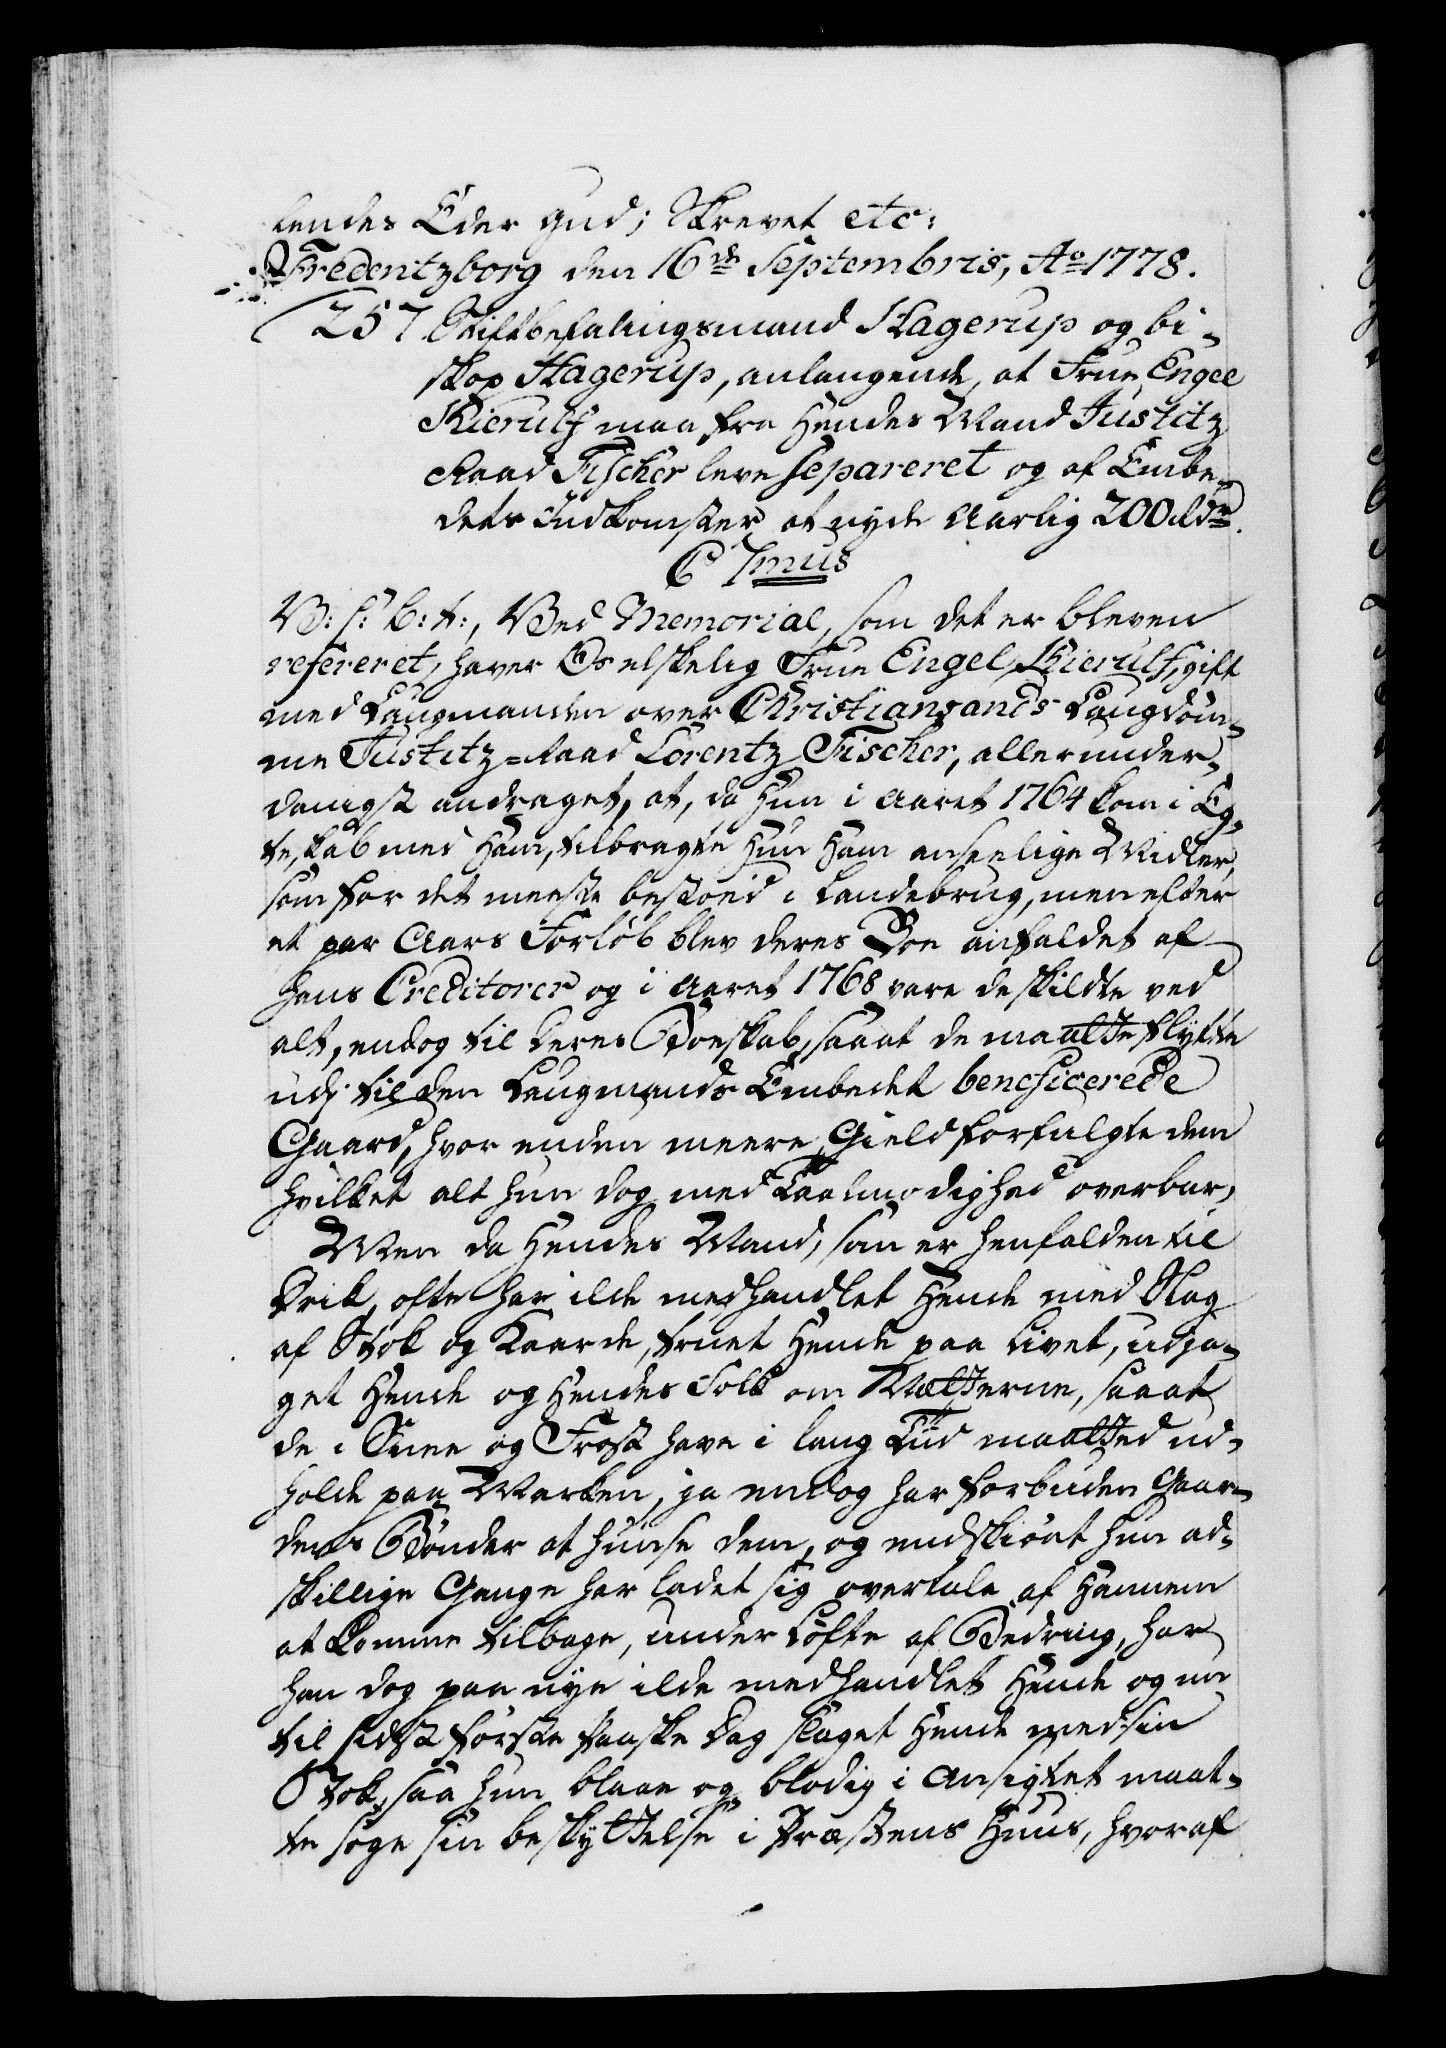 lendes Eder Gud; Skrevet etc:
Fredentzborg den 16de Septembris, Ao 1778.
257 Stiftbefalingsmand Hagerup og bi-
skop Hagerup, anlangende, at Frue Engel
Kierulf maa fra Hendes Mand Justitz
Raad Fischer leve separeret og af Embe-
dets Indkomster at nyde Aarlig 200 Rdr.
C 7mus
V: S: B: t:, Ved Memorial, som det er bleven
refereret, haver Os elskelig Frue Engel Kierulf, gift
med Laugmanden over Christiansands Laugdöm-
me Justitz-Raad Lorentz Fischer, allerunder-
danigst andraget, at, da Hun i Aaret 1764 kom i Eg-
teskab med Ham, tilbragte Hun Ham anseelige Midler,
som for det meeste bestoed i Landebrug, men efter
et par Aars Forlöb blev deres Boe anfaldet af
hans Creditorer og i Aaret 1768 vare de skildte ved
alt, endog til deres Boeskab, saa at de maatte flytte
ud til den Laugmands Embedet beneficerede
Gaard, hvor enden meere Gield forfulgte dem
hvilket alt hun dog med Taalmodighed overbar,
Men da Hendes Mand, som er henfalden til
Drik, ofte har ilde medhandlet Hende med Slag
af Stok og Kaarde, truet Hende paa Livet, udja-
get Hende og Hendes Folk om Nætterne, saa at
de i Snee og Frost have i lang Tiid maatted ud-
holde paa Marken, ja endog har forbuden Gaar-
dens Bönder at huuse dem, og endskiönt hun ad-
skillige Gange har ladet sig overtale af Hannem
at komme tilbage, under Löfte af Bedring, har
han dog paa nye ilde medhandlet Hende og nu
til sidst förste Paaske Dag slaget Hende med sin
Stok, saa hun blaae og blodig i Ansigtet maat-
te söge sin beskyttelse i Præstens Huus, hvoraf